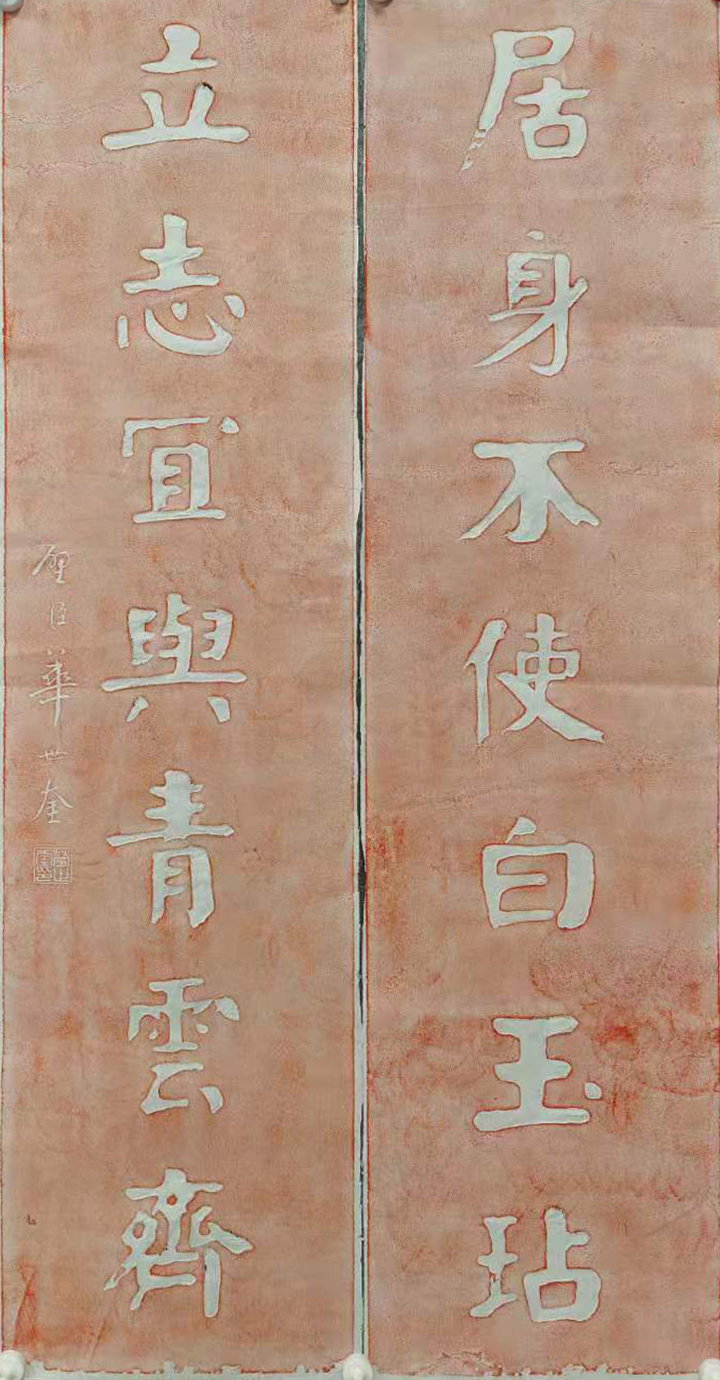 居身不使白玉玷
立志冝與青雲齊
璧臣華世奎